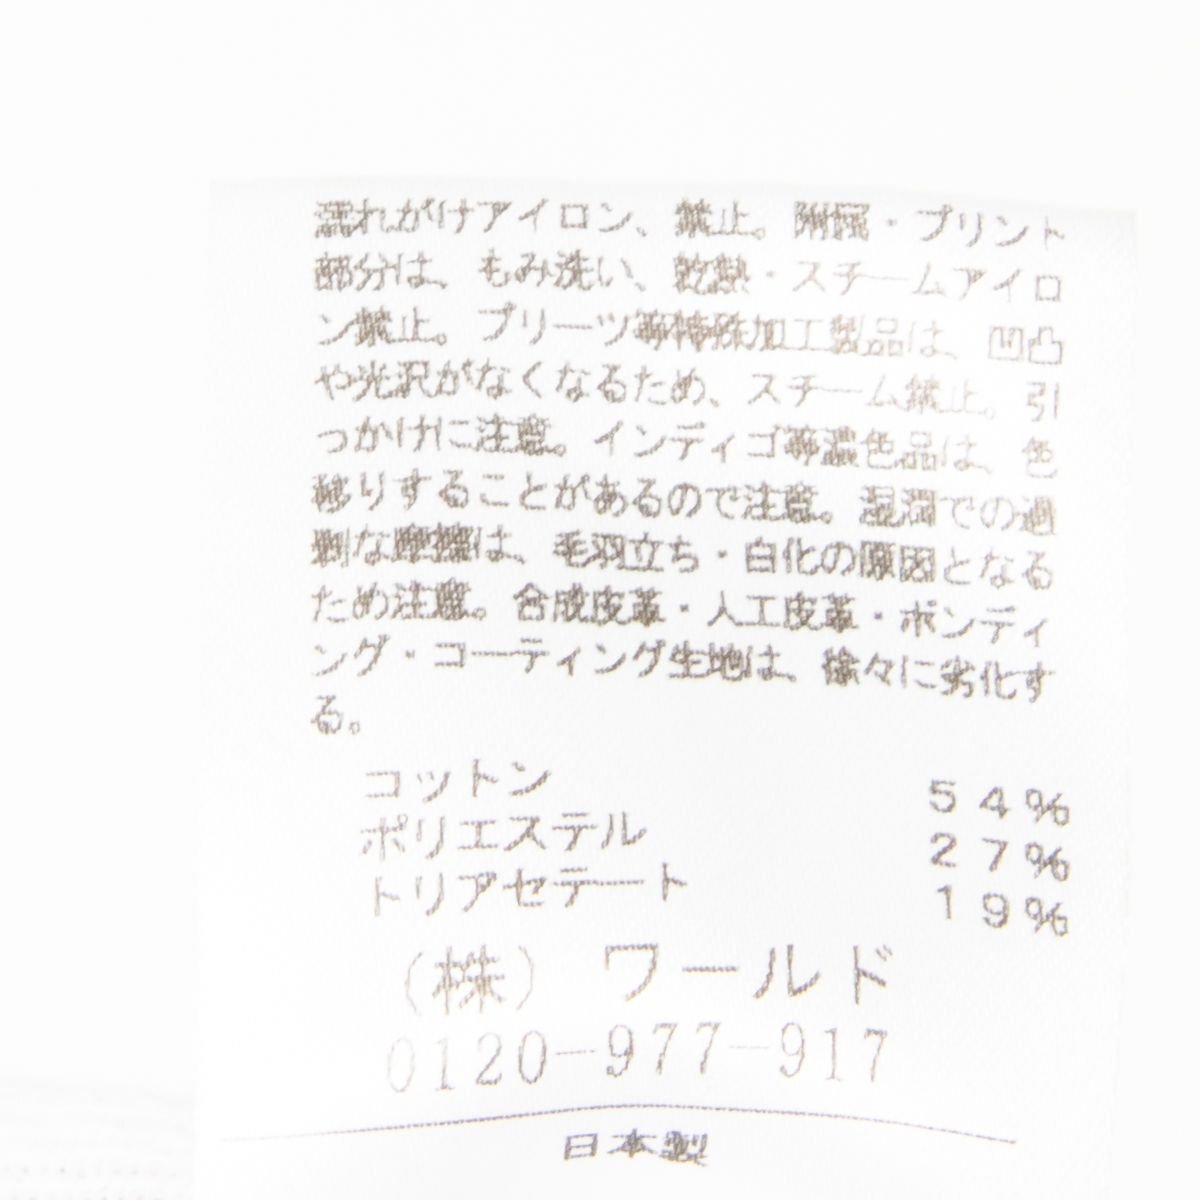 濡れがけアイロン、禁止。附属・プリント
部分は、もみ洗い、乾熱・スチームアイロ
ン禁止。プリーツ等特殊加工製品は、凹凸
や光沢がなくなるため、スチーム禁止。引
っかけに注意。インディゴ等濃色品は、色
移りすることがあるので注意。湿潤での過
剰な摩擦は、毛羽立ち・白化の原因となる
ため注意。合成皮革・人工皮革・ボンディ
ング・コーティング生地は、徐々に劣化す
る。
コットン 54%
ポリエステル 27%
トリアセテート 19%
(株) ワールド
0120-977-917
日本製